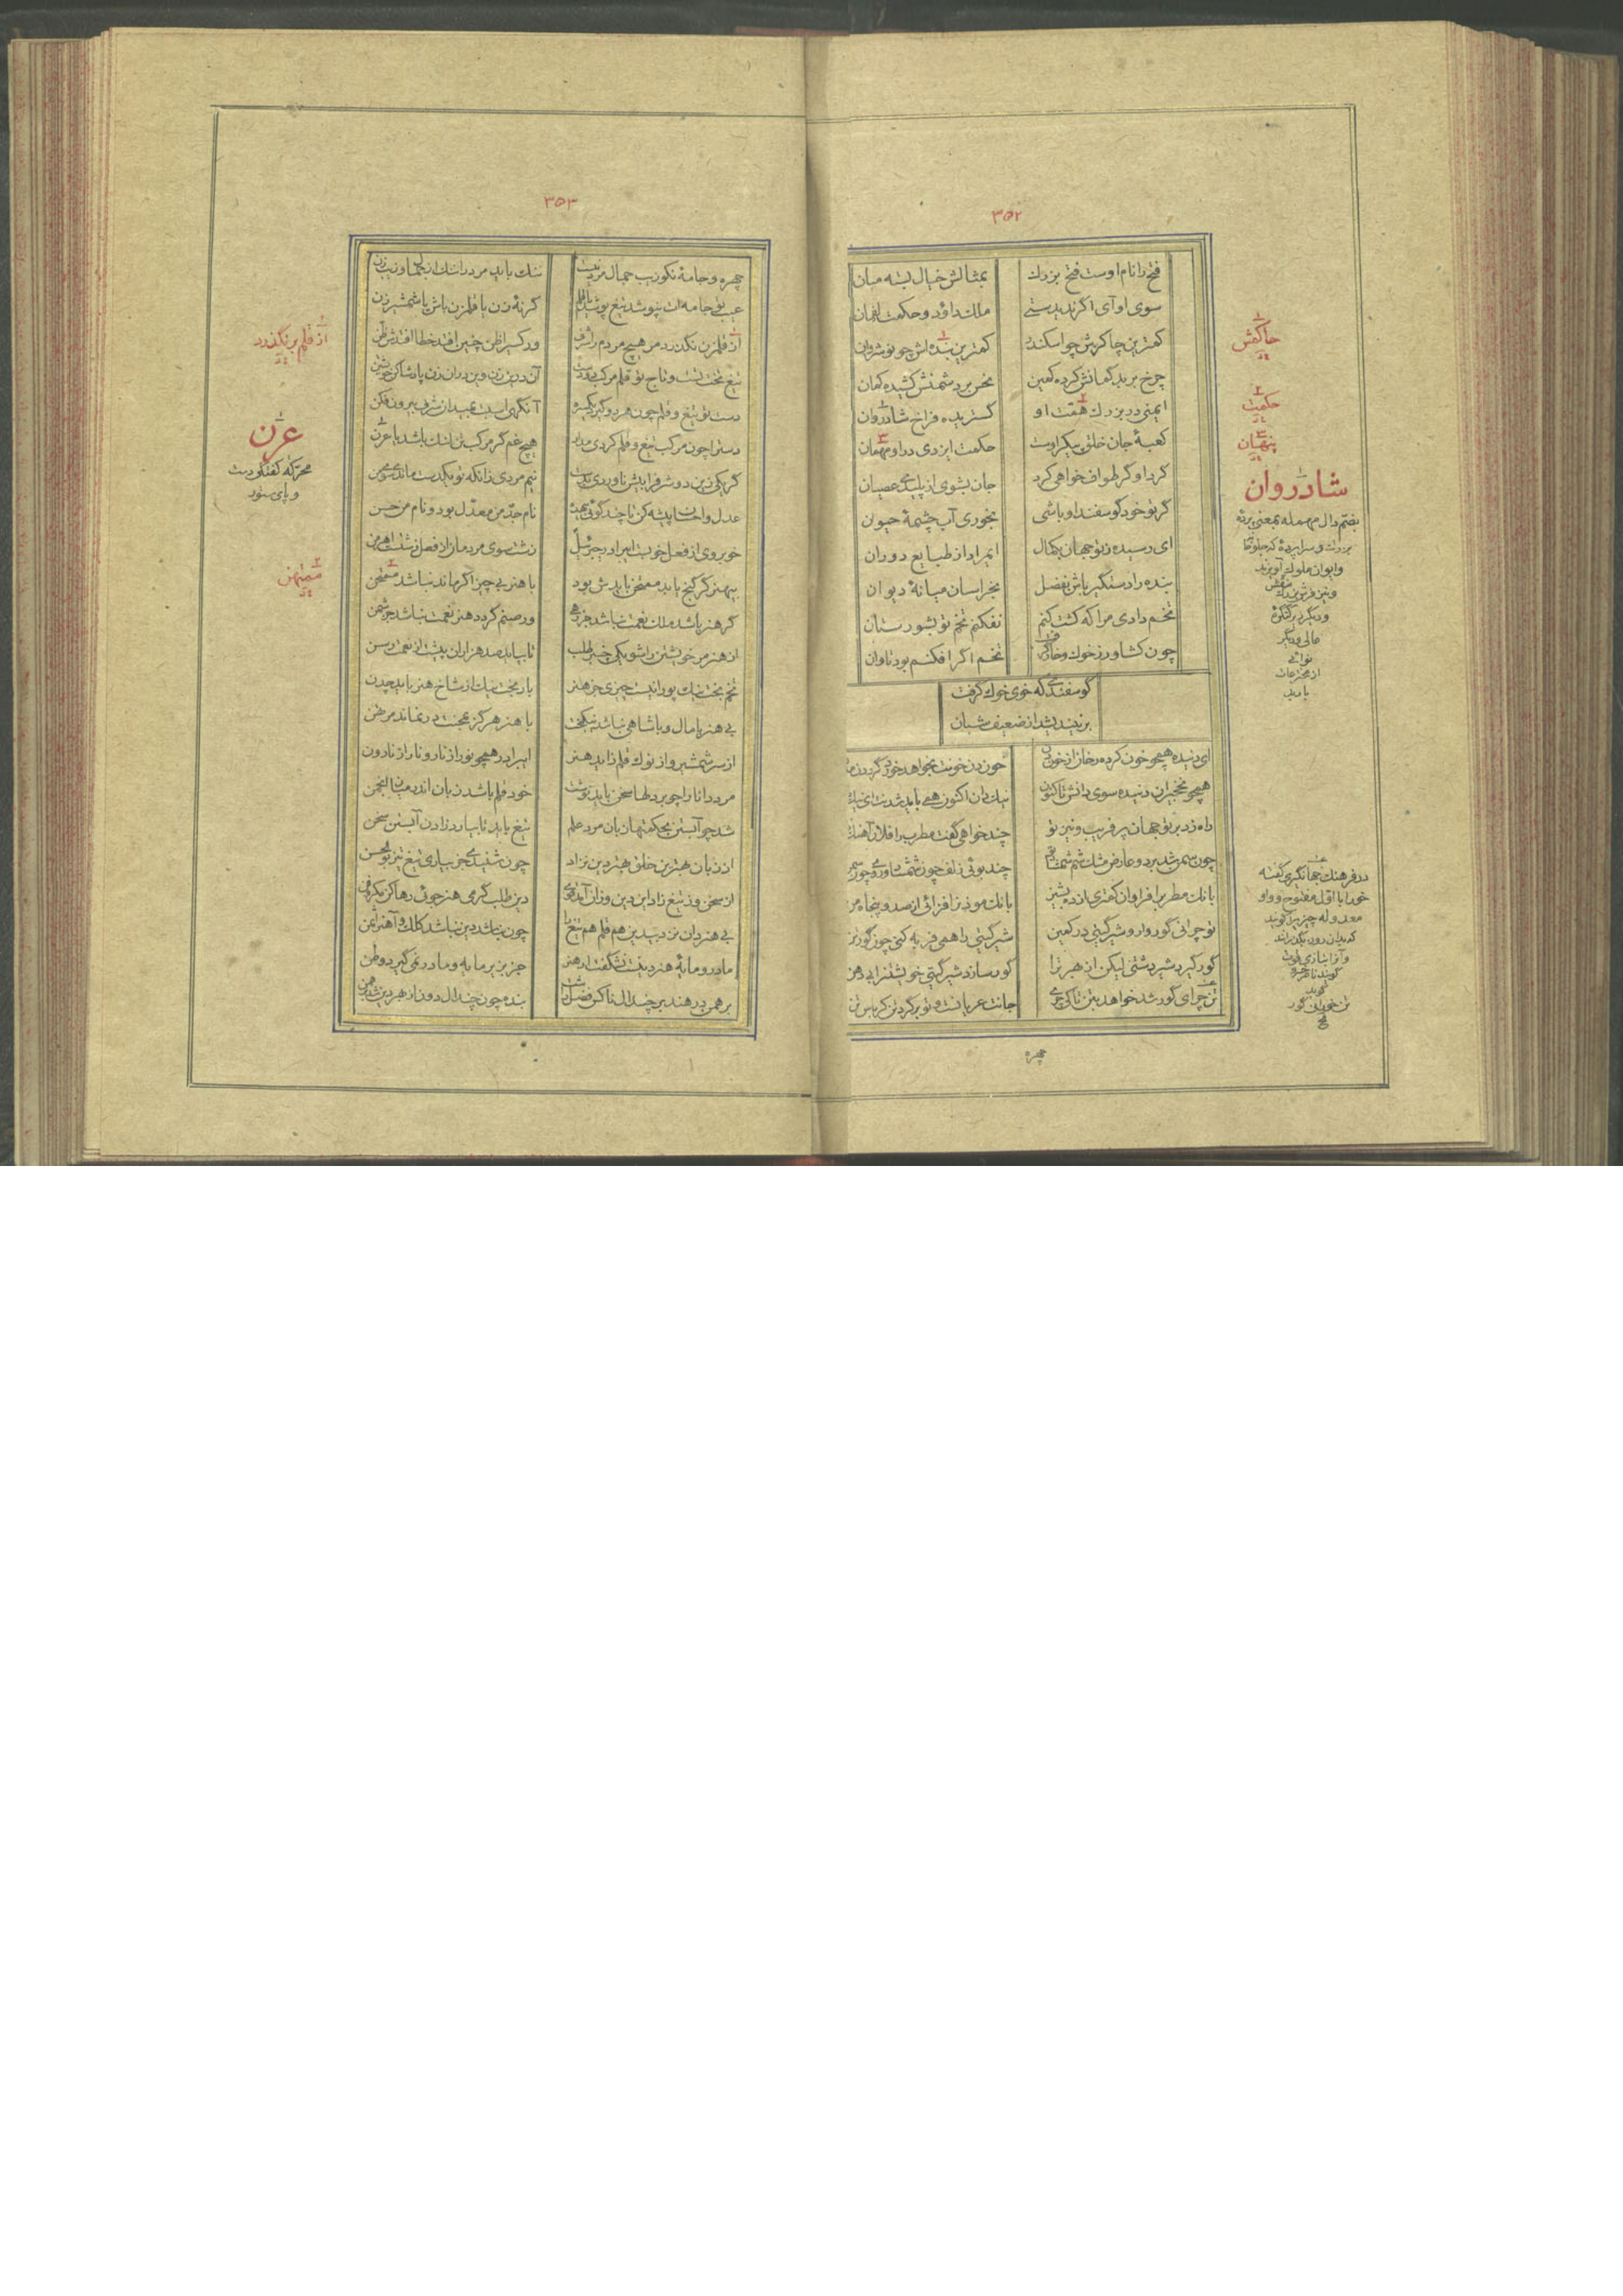 ۳۵۲
فتح را نام اوست فتح بزرگ
بمثالش خیال بسته میان
سوی او آی اگر ندیدستی
ملک داود و حکمت لقمان
کمترین چاکرش چو اسکندر
کمترین بنده‌اش چو نوشروان
چرخ برید گمانش کرده کمین
نحس بر دشمنش کشیده کمان
ایمنی در بزرگ همت او
گستریده فراخ شادروان
کعبهٔ جان خلق پیکر اوست
حکمت ایزدی در او مهمان
گرد او گر طواف خواهی کرد
جان بشوی از پلیدی عصیان
گر تو خود گوسفند او باشی
بخوری آب چشمهٔ حیوان
ای رسیده ز تو جهان بکمال
ایمراد از طبایع دوران
بنده را دستگیر باش بفضل
بخراسان میانهٔ دیوان
تخم دادی مرا که کشت کنم
نفکنم تخم تو بشورستان
چون کشاورز خوک و خار گرفت
تخم اگر افکنم بود تاوان
گوسفندی که خوی خوک گرفت
برنیندیشد از ضعیف شبان
ای دنیده همچو خون کرده رخان از خون دن
خون دن خونت بخواهد خورد گرد دن مدن
همچو نخجیران دنیده سوی دانش تاکنون
نیک دان اکنون همی باید شدن ای نیک
راه زد بر تو جهان پر فریب و نیز تو
چند خواهی گفت مطرب را فلان آهنگ
چون سمن شد برد و عارض مشک شم شمشاد
چند بوئی زلف چون شمشاد و روی چون سمن
بانگ مطرب را فراوان کمتری از ده پشیز
بانگ موذن را فزائی از صد و پنجاه من
تو چرائی گوروار و شیر گیتی در کمین
شیر گیتی را همی فربه کنی چون گور تن
گور گیرد شیر دشتی لیکن از بهر ترا
گور سازد شیر گیتی خویشتن را بی دهن
تن چرای گور شد خواهد بتن تا کی چری
جانت عریانست و تو بر گرد تن کرباس تن
چهره
حاکمش
حکمت
پنهان
شادروان
بضم دال مهمله بمعنی پردهٔ
بزرگ و سراپرده که جلو
و ایوان ملوک آویزند
و نیز فرش بزرگ منقش
و دیگر زیر کنگرهٔ
عالی و دیگر
نوائی
از مخترعات
باربد
در فرهنگ جهانگیری گفته
خورا با اول مفتوح و واو
معدوله چیزیرا گویند
که بدان روز بگذرانند
و آنرا بتازی قوت
گویند
تن خوران گور
۳۵۳
چهره و جامهٔ نکو زیب جمال مرد نیست
ننگ باید مرد را ننگ از جمال و زیب زن
عیب بی جامه‌ات بنپوشد تیغ پوشد یا قلم
گر نهٔ زن یا قلمزن باش یا شمشیر زن
از قلمزن نگذرد من هیچ مردم را شرف
ور کسی را ظن چنین افتد خطا افتدش ظن
تیغ تخت تست و تاج تو قلم مرکب دو دست
آن درین زن وین در آن زن پادشا کن خویشتن
دست تو تیغ و قلم چون هر دو گیرد یکسره
آنگهی اسب عمید از شرف بیرون فکن
دستها چون مرکب تیغ و قلم کردی مدار
هیچ غم گر مرکب تن لنگ باشد یا عرن
گر یکی زین دو شرف را بیش ناوردی بدست
نیم مردی زانکه تو یکدست مانی سوی من
عدل و احسان پیشه کن تا چند گوئی بیهده
نام جد من معدل بود و نام من حسن
خوبروی از فعل خوبست ای برادر جبرئیل
زشت سوی مردمان از فعل زشتست اهرمن
بیهنر گر گنج یابد ممتحن بایدش بود
با هنر بی چیز اگر ماند نباشد ممتحن
گر هنر باشد ملک نعمت نباشد جز رهی
ور صنم گردد هنر نعمت نباشد جز شمن
از هنر من خویشتن را شو یکی خنجر طلب
تا بیابد صد هزاران پشت از نعمت وسن
تخم بخت نیک پورا نیست چیزی جز هنر
بار بخت نیک از شاخ هنر باید چدن
بی هنر با مال و با شاهی نباشد نیکبخت
با هنر هرگز بمحنت در نماند مرتهن
از سر شمشیر و از نوک قلم زاید هنر
ای برادر همچو نور از نار و نار از نارون
مرد دانا را چو بر دلها سخن باید نوشت
خود قلم باشد زبان اندر میان انجمن
شد چو آبستن بحکمتها زبان مرد علم
تیغ باید تا بیارد زادن آبستن سخن
از زبان بهترین خلق بهتر دین نزاد
چون شنیدی جز بیاری تیغ تیز بوالحسن
از سخن وز تیغ زاد این دین و زان آمد قوی
دین طلب گر می هنر جوئی رها کن مکر و فن
بی هنر دان نزد بیدین هم قلم هم تیغ را
چون نباشد دین نباشد کلک و آهن را ثمن
مادر و مایهٔ هنر دینست نشکفت ار هنر
جز بزیر مایه و مادر نمی گیرد وطن
برهمن در هند بر چندال ناکس فضل داشت
بنده چون چندال دون از بهر دین شد برهمن
از قلم برنگذرد
عرن
محرکه کفتگو دست
و پای ستور
ممتهن